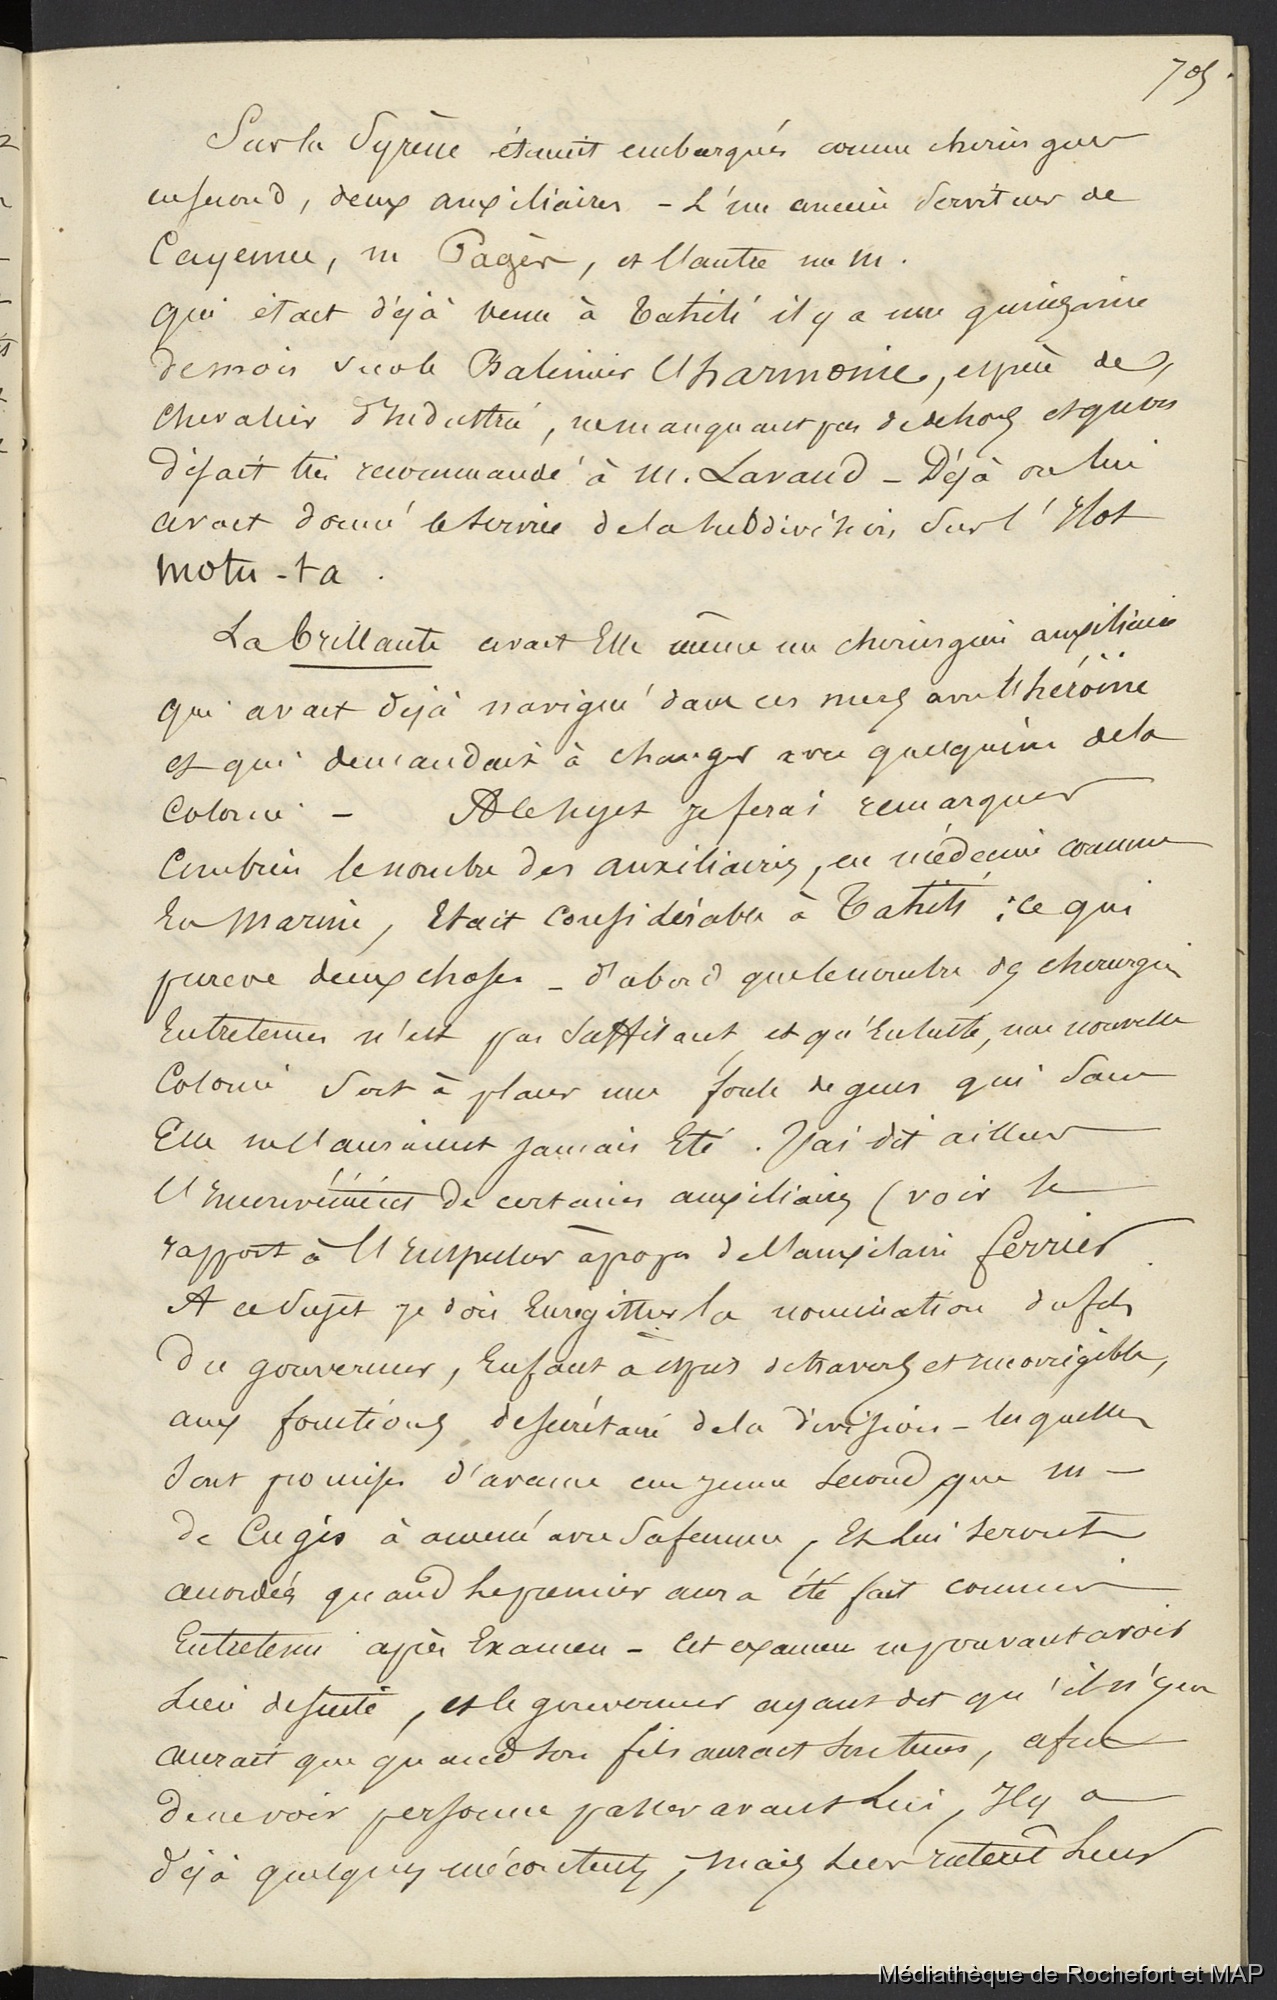 705.
Sur la Syrène étaient embarqués comme chirurgiens
en second, deux auxiliaires - L'un ancien serviteur de
Cayenne, m Pagès, et l'autre un m.
qui était déjà venu à Tahiti il y a une quinzaine
de mois sur le Baleinier l'harmonie, espèce de
chevalier d'Industrie, ne manquant pas de dehors et qu'on
disait très recommandé à M. Lavaud - Déjà on lui
avait donné le service de la subdivision sur l'Ilot
motu-ta.
La brillante avait Elle même un chirurgien auxiliaire
qui avait déjà navigué dans ces mers avec l'héroïne
et qui demandait à changer avec quelqu'un de la
Colonie - A ce sujet je ferai remarquer
Combien le nombre des auxiliaires, en médecine comme
En marine, Etait Considérable à Tahiti ; ce qui
prouve deux choses - d'abord que le nombre des chirurgiens
Entretenus n'est pas suffisant et qu'Ensuite, une nouvelle
Colonie sert à placer une foule de gens qui sans
Elle ne l'auraient jamais Eté. J'ai dit ailleurs
l'Inconvénient de certains auxiliaires (voir le
rapport à l'Inspecteur à propos de l'auxiliaire ferrier
A ce sujet je dois Enregistrer la nomination du fils
Du gouverneur, Enfant à esprit de travers et incorrigible,
aux fonctions de secrétaire de la division - lesquelles
sont promises d'avance au jeune second que m -
de Cugis à amené avec sa femme, Et lui seront
accordées quand le premier aura été fait commis
Entretenu après Examen - Cet examen ne pouvant avoir
Lieu de suite, et le gouverneur ayant dit qu'il n'y en
aurait que quand son fils aurait son tems, afin
de ne voir personne passer avant Lui, Il y a
déjà quelques mécontents, mais Leur intérêt Leur
Médiathèque de Rochefort et MAP